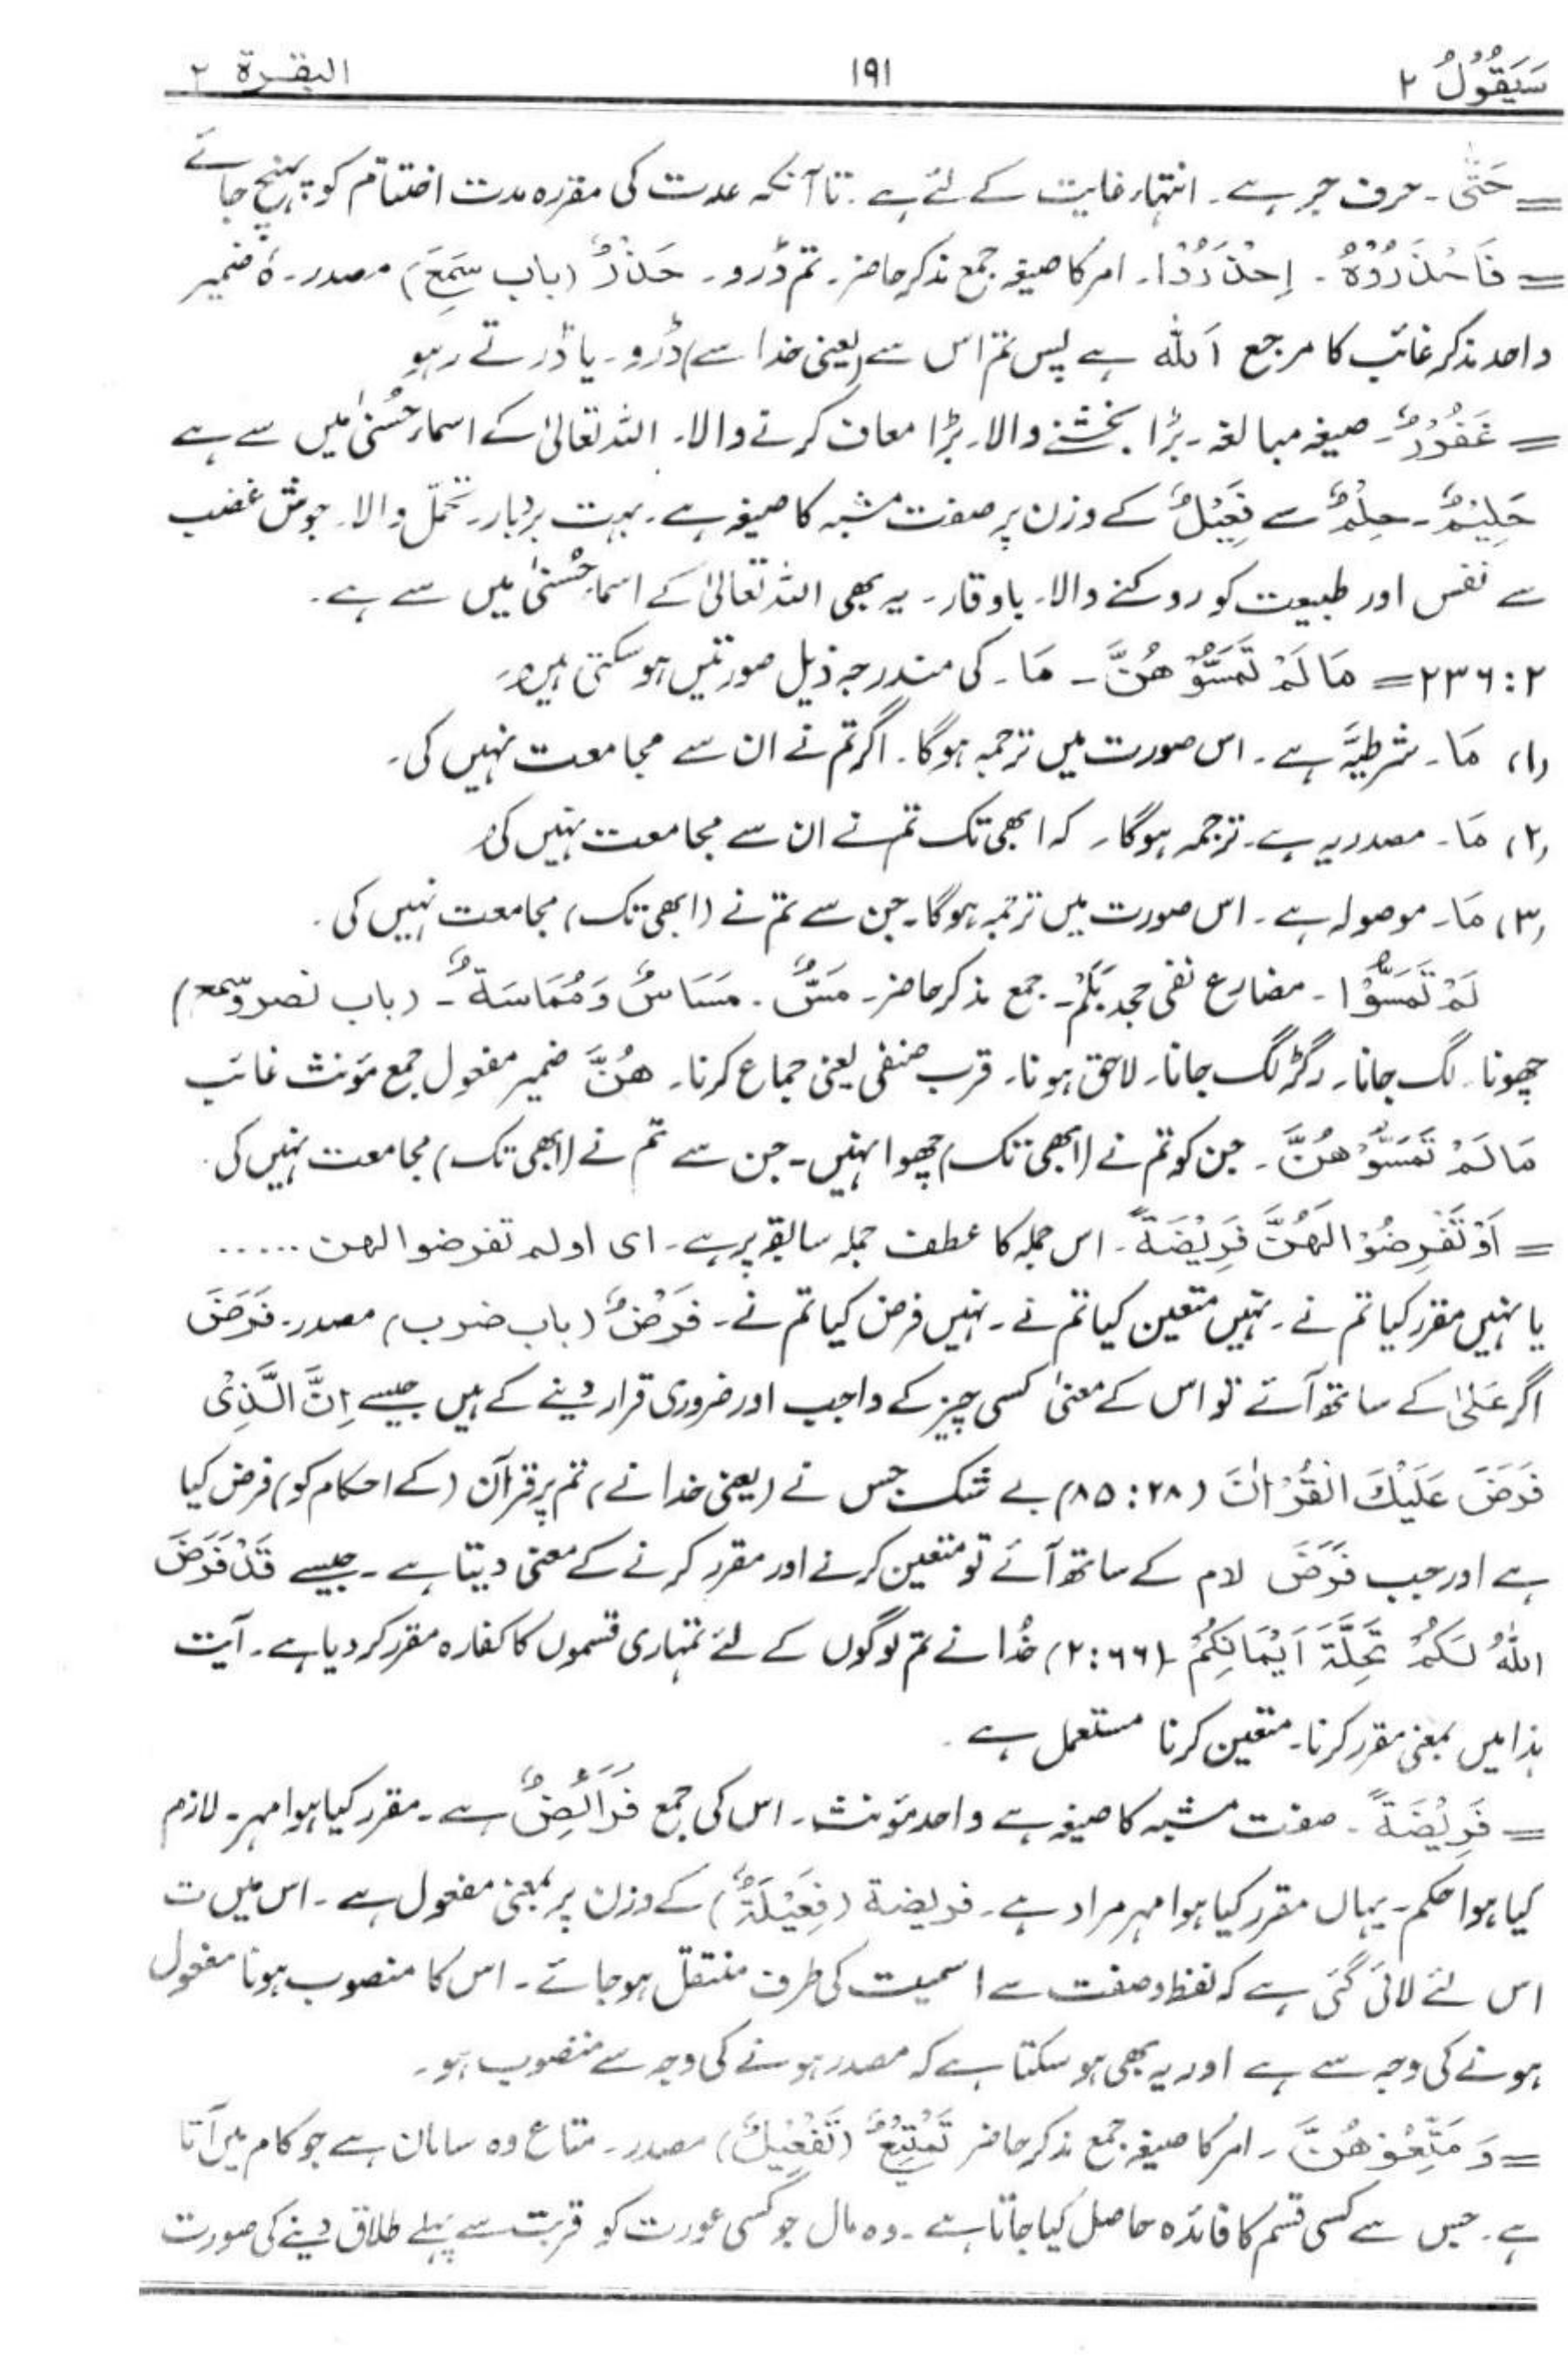 سَیَقُوْلُ ۲ ۱۹۱ البقرة ۲
= حَتّٰی۔ حرف جر ہے۔ انتہاء غایت کے لئے ہے۔ تا آنکہ عدت کی مقررہ مدت اختتام کو پہنچ جائے
= فَاحْذَرُوْهُ۔ اِحْذَرُوْا۔ امر کا صیغہ جمع مذکر حاضر۔ تم ڈرو۔ حَذَرٌ (باب سَمِعَ) مصدر۔ هٗ ضمیر
واحد مذکر غائب کا مرجع اَللّٰہ ہے پس تم اس سے (یعنی خدا سے) ڈرو۔ یا ڈرتے رہو
= غَفُوْرٌ۔ صیغہ مبالغہ۔ بڑا بخشنے والا۔ بڑا معاف کرنے والا۔ اللہ تعالیٰ کے اسماء حُسنیٰ میں سے ہے
حَلِیْمٌ۔ حِلْمٌ سے فَعِیْلٌ کے وزن پر صفت مشبہ کا صیغہ ہے۔ بہت بردبار۔ تحمّل والا۔ جوش غضب
سے نفس اور طبیعت کو روکنے والا۔ باوقار۔ یہ بھی اللہ تعالیٰ کے اسماء حُسنیٰ میں سے ہے۔
۲:۲۳۶ = مَا لَمْ تَمَسُّوْ هُنَّ۔ مَا۔ کی مندرجہ ذیل صورتیں ہو سکتی ہیں۔
(۱) مَا۔ شرطیَّہ ہے۔ اس صورت میں ترجمہ ہوگا۔ اگر تم نے ان سے مجامعت نہیں کی۔
(۲) مَا۔ مصدریہ ہے۔ ترجمہ ہوگا۔ کہ ابھی تک تم نے ان سے مجامعت نہیں کی۔
(۳) مَا۔ موصولہ ہے۔ اس صورت میں ترجمہ ہوگا۔ جن سے تم نے (ابھی تک) مجامعت نہیں کی۔
لَمْ تَمَسُّوْا۔ مضارع نفی جحد بَلَمْ۔ جمع مذکر حاضر۔ مَسٌّ۔ مَسَاسٌ وَمُمَاسَةٌ۔ (باب نصر وسمع)
چھونا۔ لگ جانا۔ رگڑ لگ جانا۔ لاحق ہونا۔ قرب صنفی یعنی جماع کرنا۔ هُنَّ ضمیر مفعول جمع مؤنث غائب
مَا لَمْ تَمَسُّوْ هُنَّ۔ جن کو تم نے (ابھی تک) چھوا نہیں۔ جن سے تم نے (ابھی تک) مجامعت نہیں کی۔
= اَوْ تَفْرِضُوْا لَهُنَّ فَرِیْضَةً۔ اس جملہ کا عطف جملہ سابقہ پر ہے۔ ای او لم تفرضوا لھن .....
یا نہیں مقرر کیا تم نے۔ نہیں متعین کیا تم نے۔ نہیں فرض کیا تم نے۔ فَرْضٌ (باب ضرب) مصدر۔ فَرَضَ
اگر عَلٰی کے ساتھ آئے تو اس کے معنیٰ کسی چیز کے واجب اور ضروری قرار دینے کے ہیں جیسے اِنَّ الَّذِیْ
فَرَضَ عَلَیْكَ الْقُرْاٰنَ (۲۸:۸۵) بے شک جس نے (یعنی خدا نے) تم پر قرآن (کے احکام کو) فرض کیا
ہے اور جب فَرَضَ لام کے ساتھ آئے تو متعین کرنے اور مقرر کرنے کے معنی دیتا ہے۔ جیسے قَدْ فَرَضَ
اللّٰهُ لَكُمْ تَحِلَّةَ اَیْمَانِكُمْ (۲:۶۶) خُدا نے تم لوگوں کے لئے تمہاری قسموں کا کفارہ مقرر کر دیا ہے۔ آیت
ہذا میں بمعنی مقرر کرنا۔ متعین کرنا مستعمل ہے۔
= فَرِیْضَةً۔ صفت مشبہ کا صیغہ ہے واحد مؤنث۔ اس کی جمع فَرَائِضٌ ہے۔ مقرر کیا ہوا مہر۔ لازم
کیا ہوا حکم۔ یہاں مقرر کیا ہوا مہر مراد ہے۔ فریضة (فَعِیْلَةٌ) کے وزن پر بمعنی مفعول ہے۔ اس میں ت
اس لئے لائی گئی ہے کہ لفظ وصفت سے اسمیت کی طرف منتقل ہو جائے۔ اس کا منصوب ہونا مفعول
ہونے کی وجہ سے ہے اور یہ بھی ہو سکتا ہے کہ مصدر ہونے کی وجہ سے منصوب ہو۔
= وَ مَتِّعُوْ هُنَّ۔ امر کا صیغہ جمع مذکر حاضر تَمْتِیْعٌ (تَفْعِیْلٌ) مصدر۔ متاع وہ سامان ہے جو کام میں آتا
ہے۔ جس سے کسی قسم کا فائدہ حاصل کیا جاتا ہے۔ وہ مال جو کسی عورت کو قربت سے پہلے طلاق دینے کی صورت